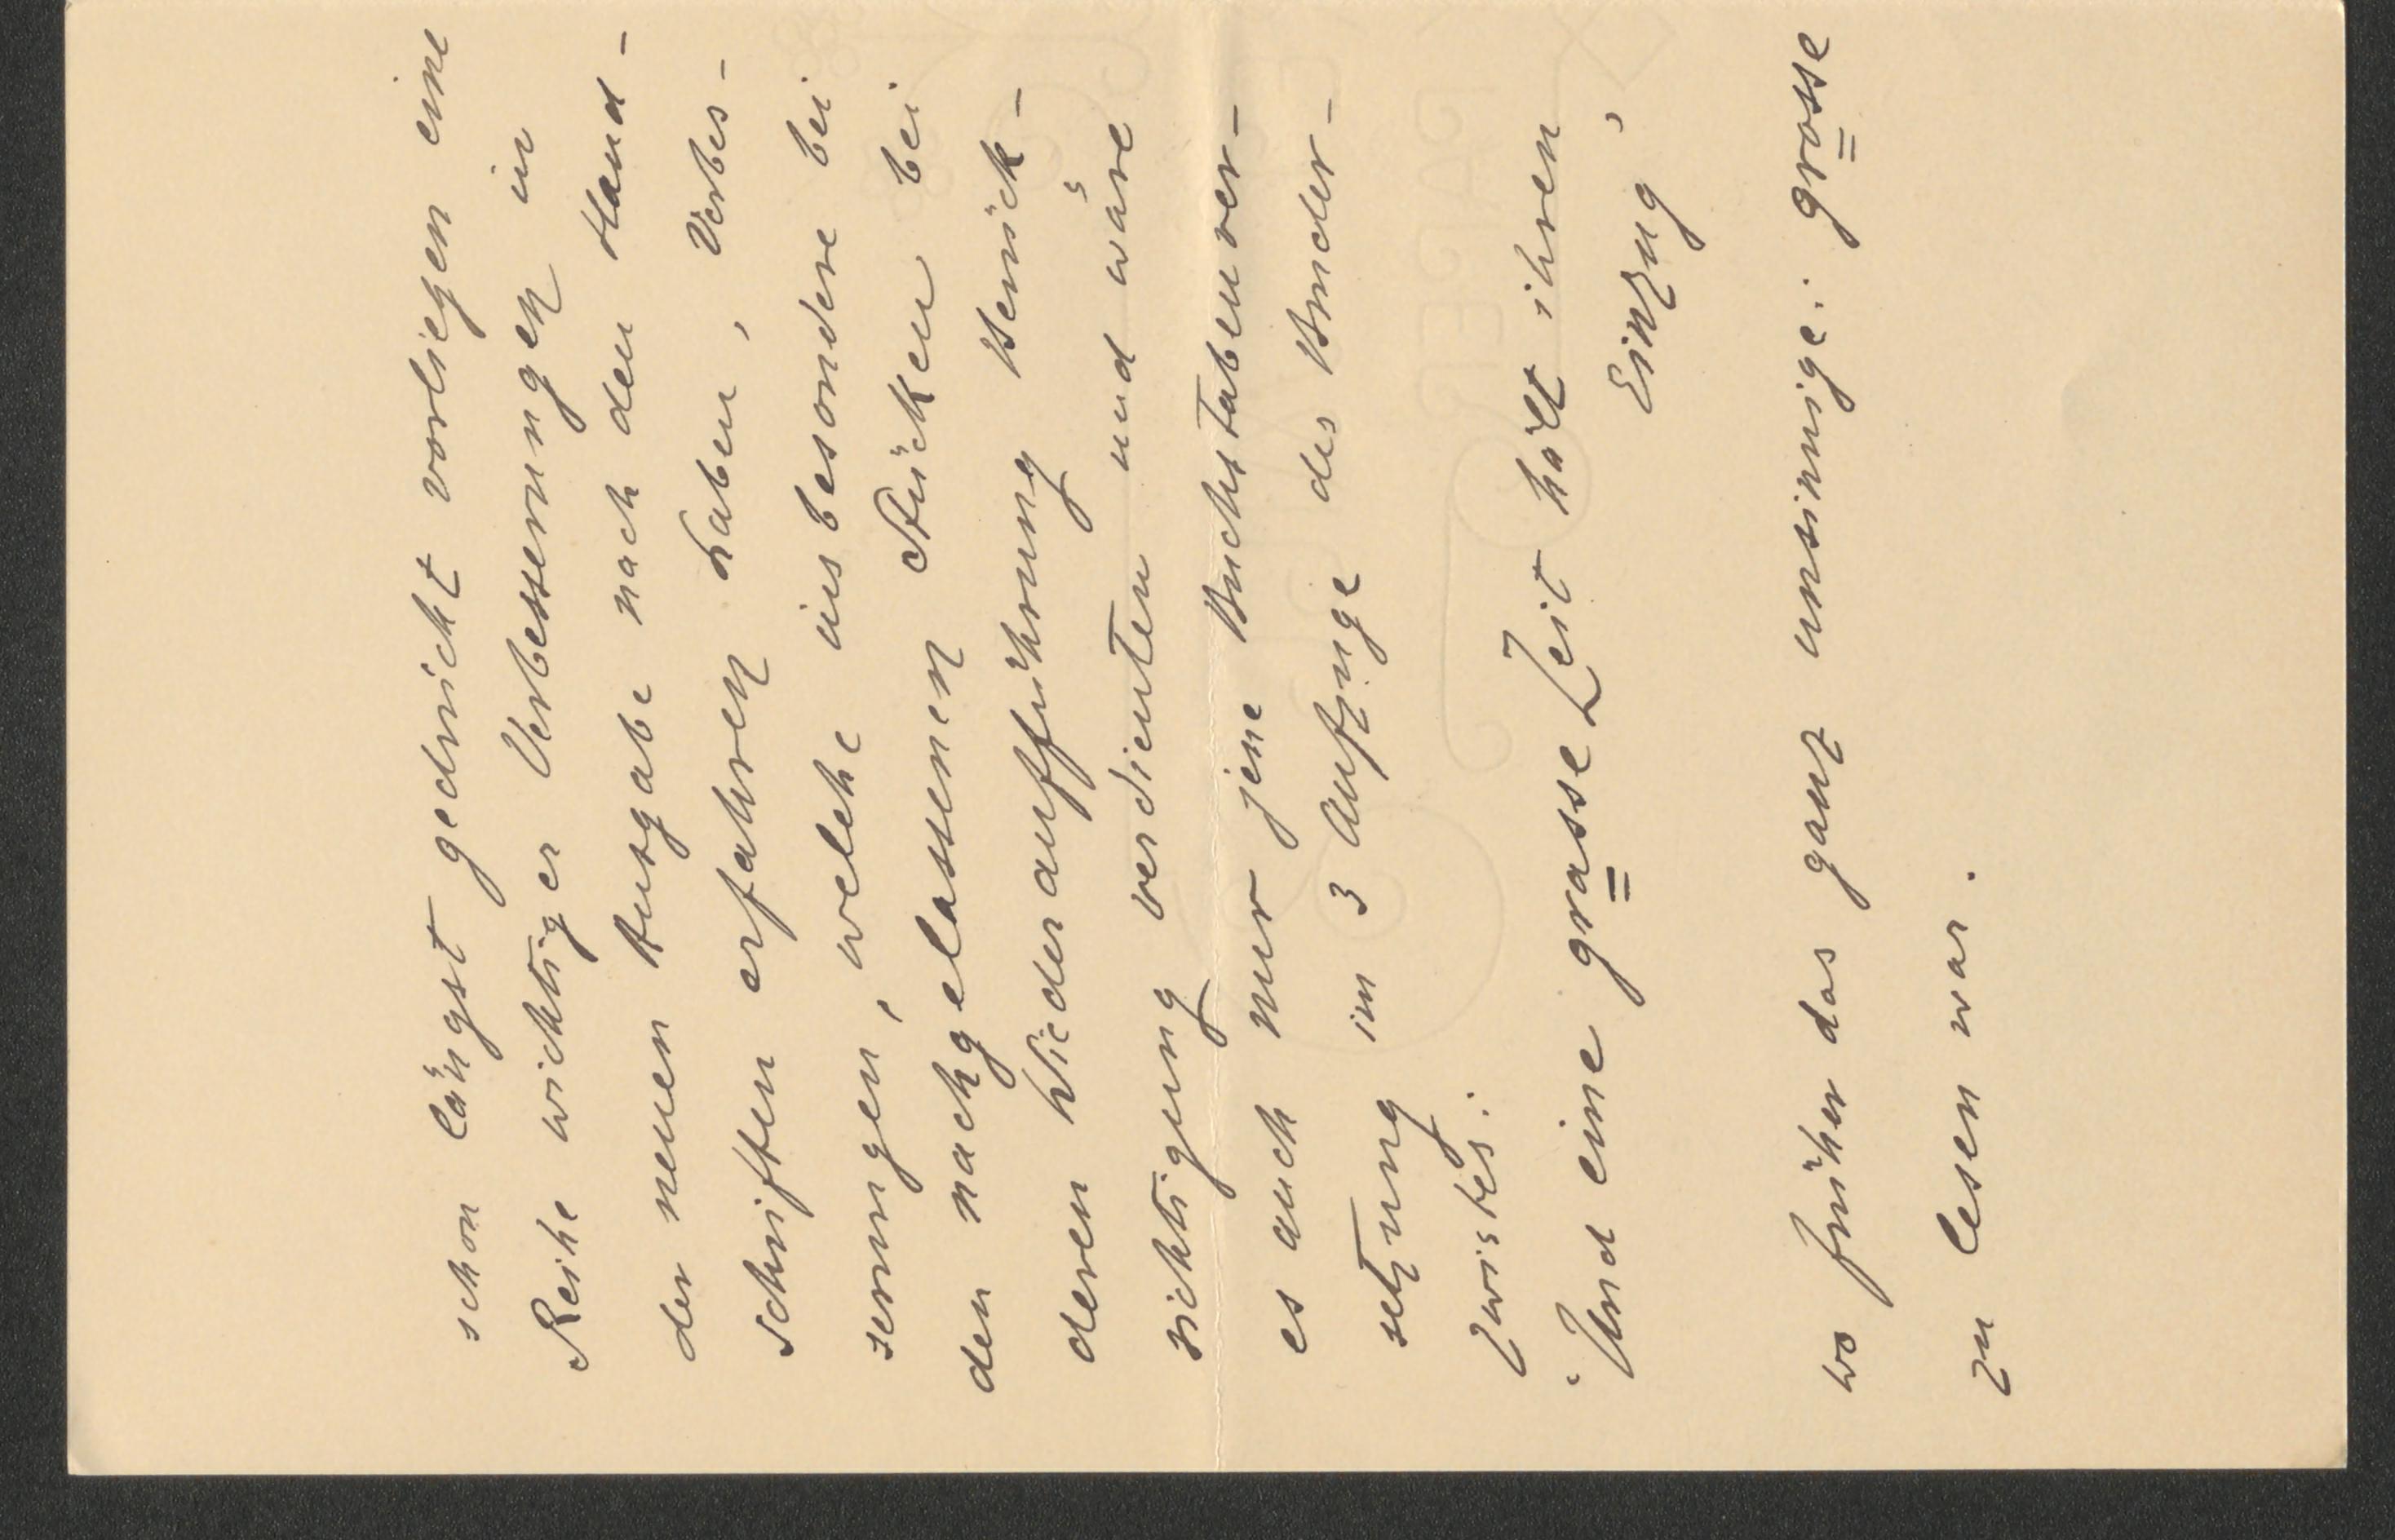 schon längst gedruckt vorliegen eine
Reihe wichtiger Verbesserungen in
der neuen Ausgabe nach den Hand-
schriften erfahren haben, Verbes-
serungen, welche insbesondere bei
den nachgelassenen Stücken bei
deren Wiederaufführung Berück-
sichtigung verdienten und wäre
es auch nur jene Buchstabenver-
setzung im 3 Aufzuge des Bruder-
zwistes:
"Und eine grasse Zeit hält ihren
Einzug,
wo früher das ganz unsinnige: grosse
zu lesen war.